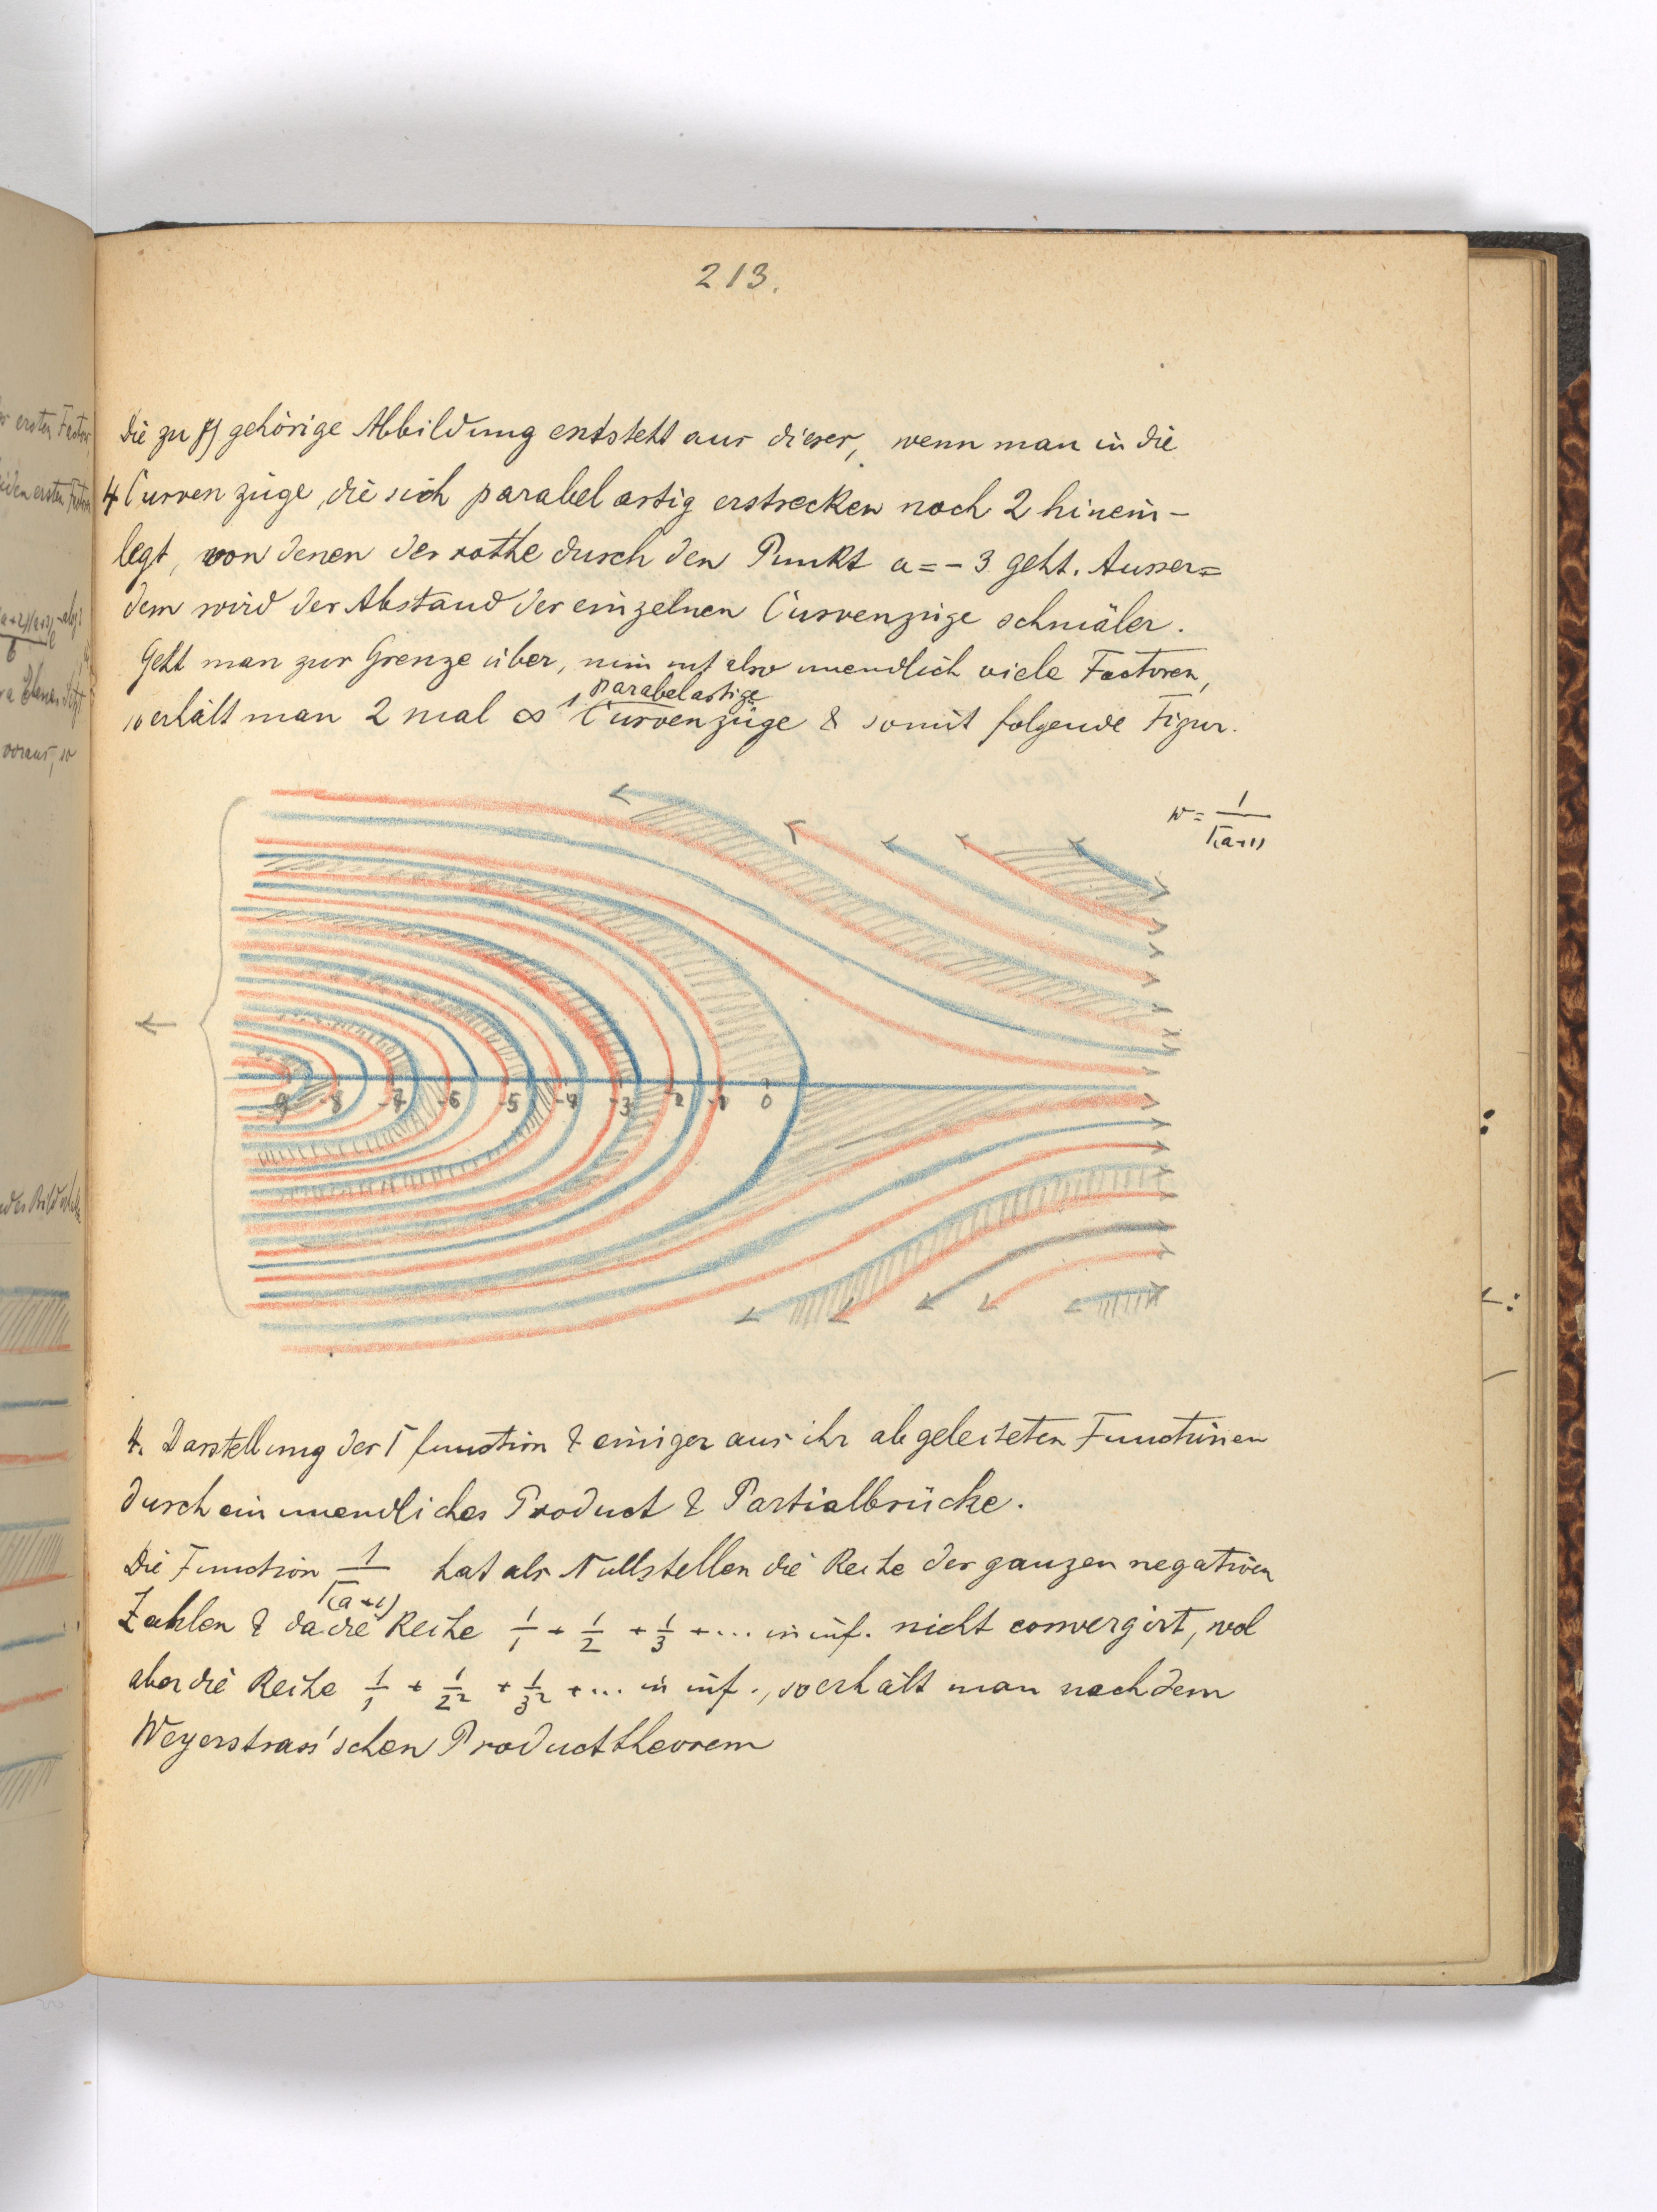 213.
Die zu γ) gehörige Abbildung entsteht aus dieser, wenn man in die
4 Curvenzüge, die sich parabelartig erstrecken noch 2 hinein-
legt, von denen der rothe durch den Punkt a = - 3 geht. Ausser=
dem wird der Abstand der einzelnen Curvenzüge schmäler.
Geht man zur Grenze über, nimmt also unendlich viele Factoren,
so erhält man 2 mal ∞ parabelartige Curvenzüge & somit folgende Figur.
w = 1/Γ(a+1)
-9 -8 -7 -6 -5 -4 -3 -2 -1 0
4. Darstellung der Γfunction & einiger aus ihr abgeleiteten Functionen
durch ein unendliches Product & Partialbrüche.
Die Function 1/Γ(a+1) hat als Nullstellen die Reihe der ganzen negativen
Zahlen & da die Reihe 1/1 + 1/2 + 1/3 + ... in inf. nicht convergirt, wol
aber die Reihe 1/1 + 1/2² + 1/3² + ... in inf., so erhält man nach dem
Weyerstrass'schen Producttheorem
er ersten Factor,
beiden ersten Factoren
voraus, so